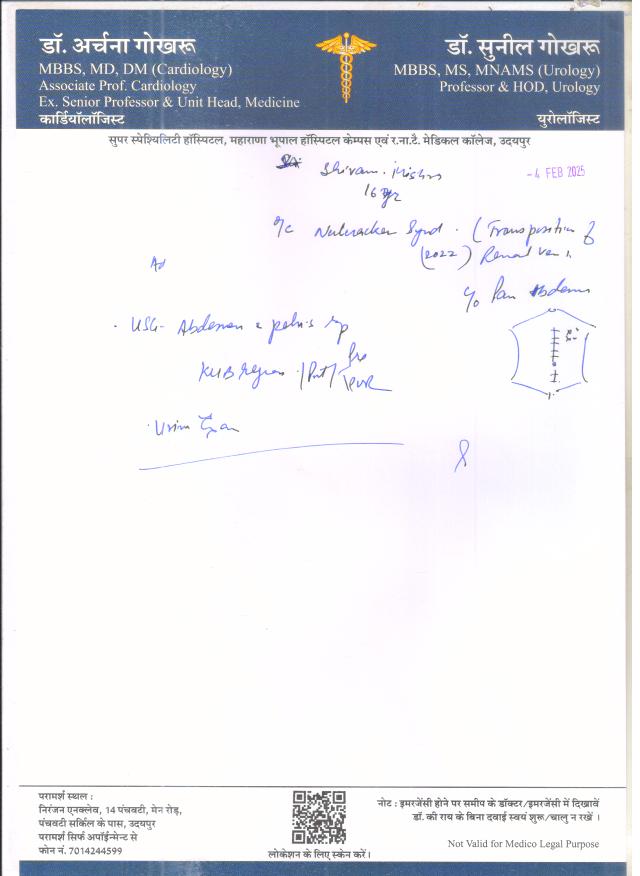 डॉ. अर्चना गोखरू
MBBS, MD, DM (Cardiology)
Associate Prof. Cardiology
Ex. Senior Professor & Unit Head, Medicine
कार्डियोलॉजिस्ट
डॉ. सुनील गोखरू
MBBS, MS, MNAMS (Urology)
Professor & HOD, Urology
युरोलॉजिस्ट
सुपर स्पेश्यिलिटी हॉस्पिटल, महाराणा भूपाल हॉस्पिटल केम्पस एवं र.ना.टै. मेडिकल कॉलेज, उदयपुर
Shivam
- 4 FEB 2025
16 yr
Nutcracker Synd. (Transposition of
(2022) Renal vein.
c/o Pain Abdomen
Ad
. USG- Abdomen & pelvis
KUB region Pre
PVR
. Urine Exam
परामर्श स्थल :
निरंजन एनक्लेव, 14 पंचवटी, मेन रोड़,
पंचवटी सर्किल के पास, उदयपुर
परामर्श सिर्फ अपॉईन्मेन्ट से
फोन नं. 7014244599
लोकेशन के लिए स्केन करें।
नोट : इमरजेंसी होने पर समीप के डॉक्टर/इमरजेंसी में दिखावें
डॉ. की राय के बिना दवाई स्वयं शुरू/चालु न रखें ।
Not Valid for Medico Legal Purpose